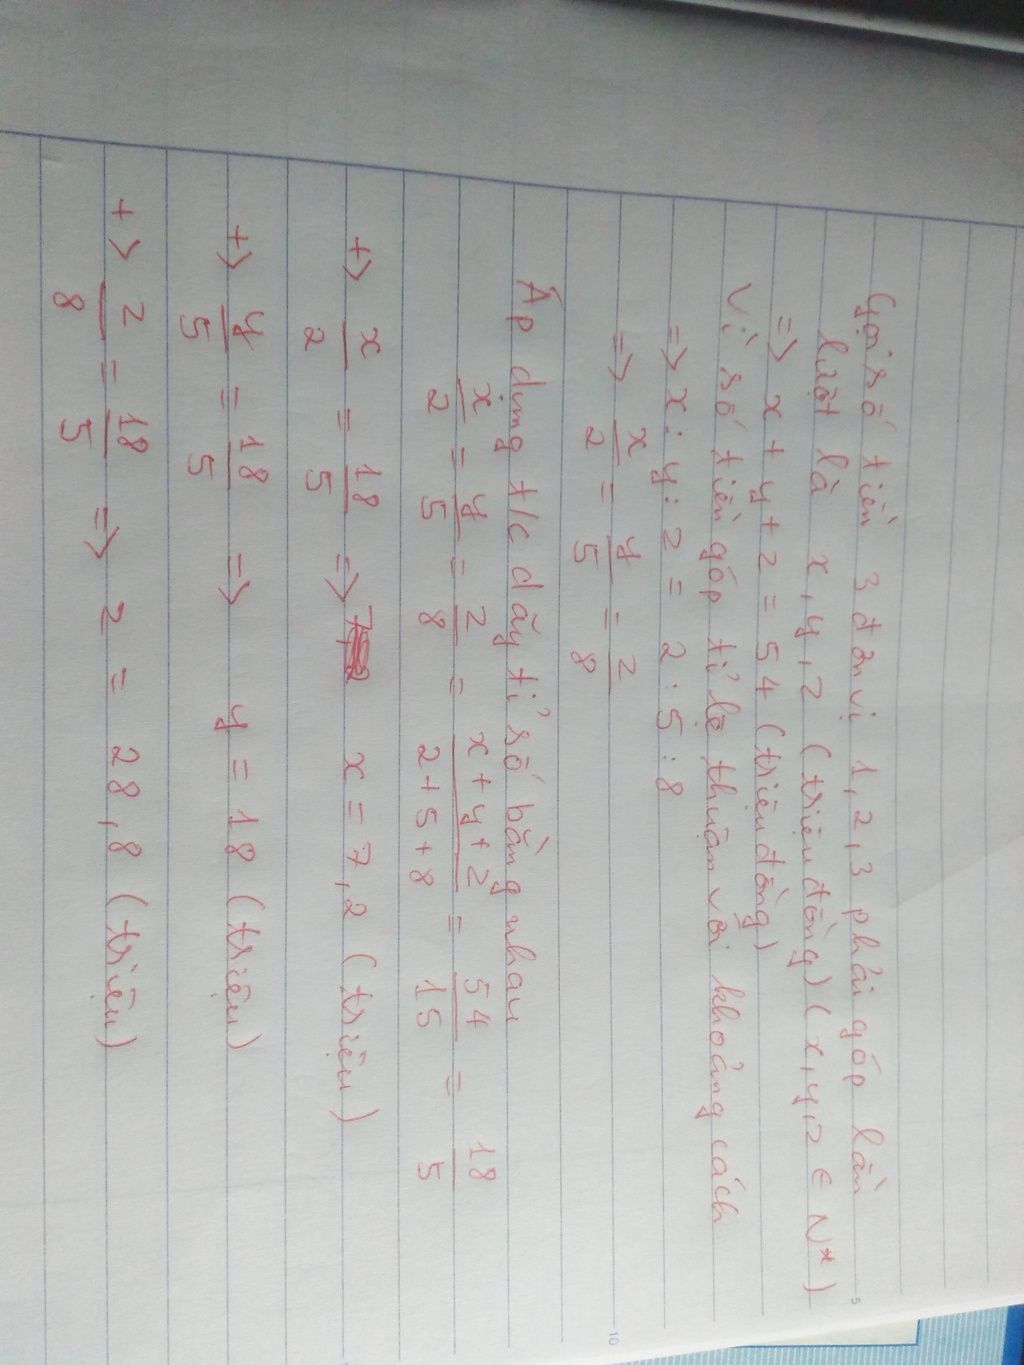 Gọi số tiền 3 đơn vị 1, 2, 3 phải góp lần
lượt là x, y, z (triệu đồng) (x, y, z ∈ N*)
=> x + y + z = 54 (triệu đồng)
Vì số tiền góp tỉ lệ thuận với khoảng cách
=> x : y : z = 2 : 5 : 8
=> x/2 = y/5 = z/8
Áp dụng t/c dãy tỉ số bằng nhau
x/2 = y/5 = z/8 = x + y + z / 2 + 5 + 8 = 54/15 = 18/5
+> x/2 = 18/5 => x = 7,2 (triệu)
+> y/5 = 18/5 => y = 18 (triệu)
+> z/8 = 18/5 => z = 28,8 (triệu)
5
10